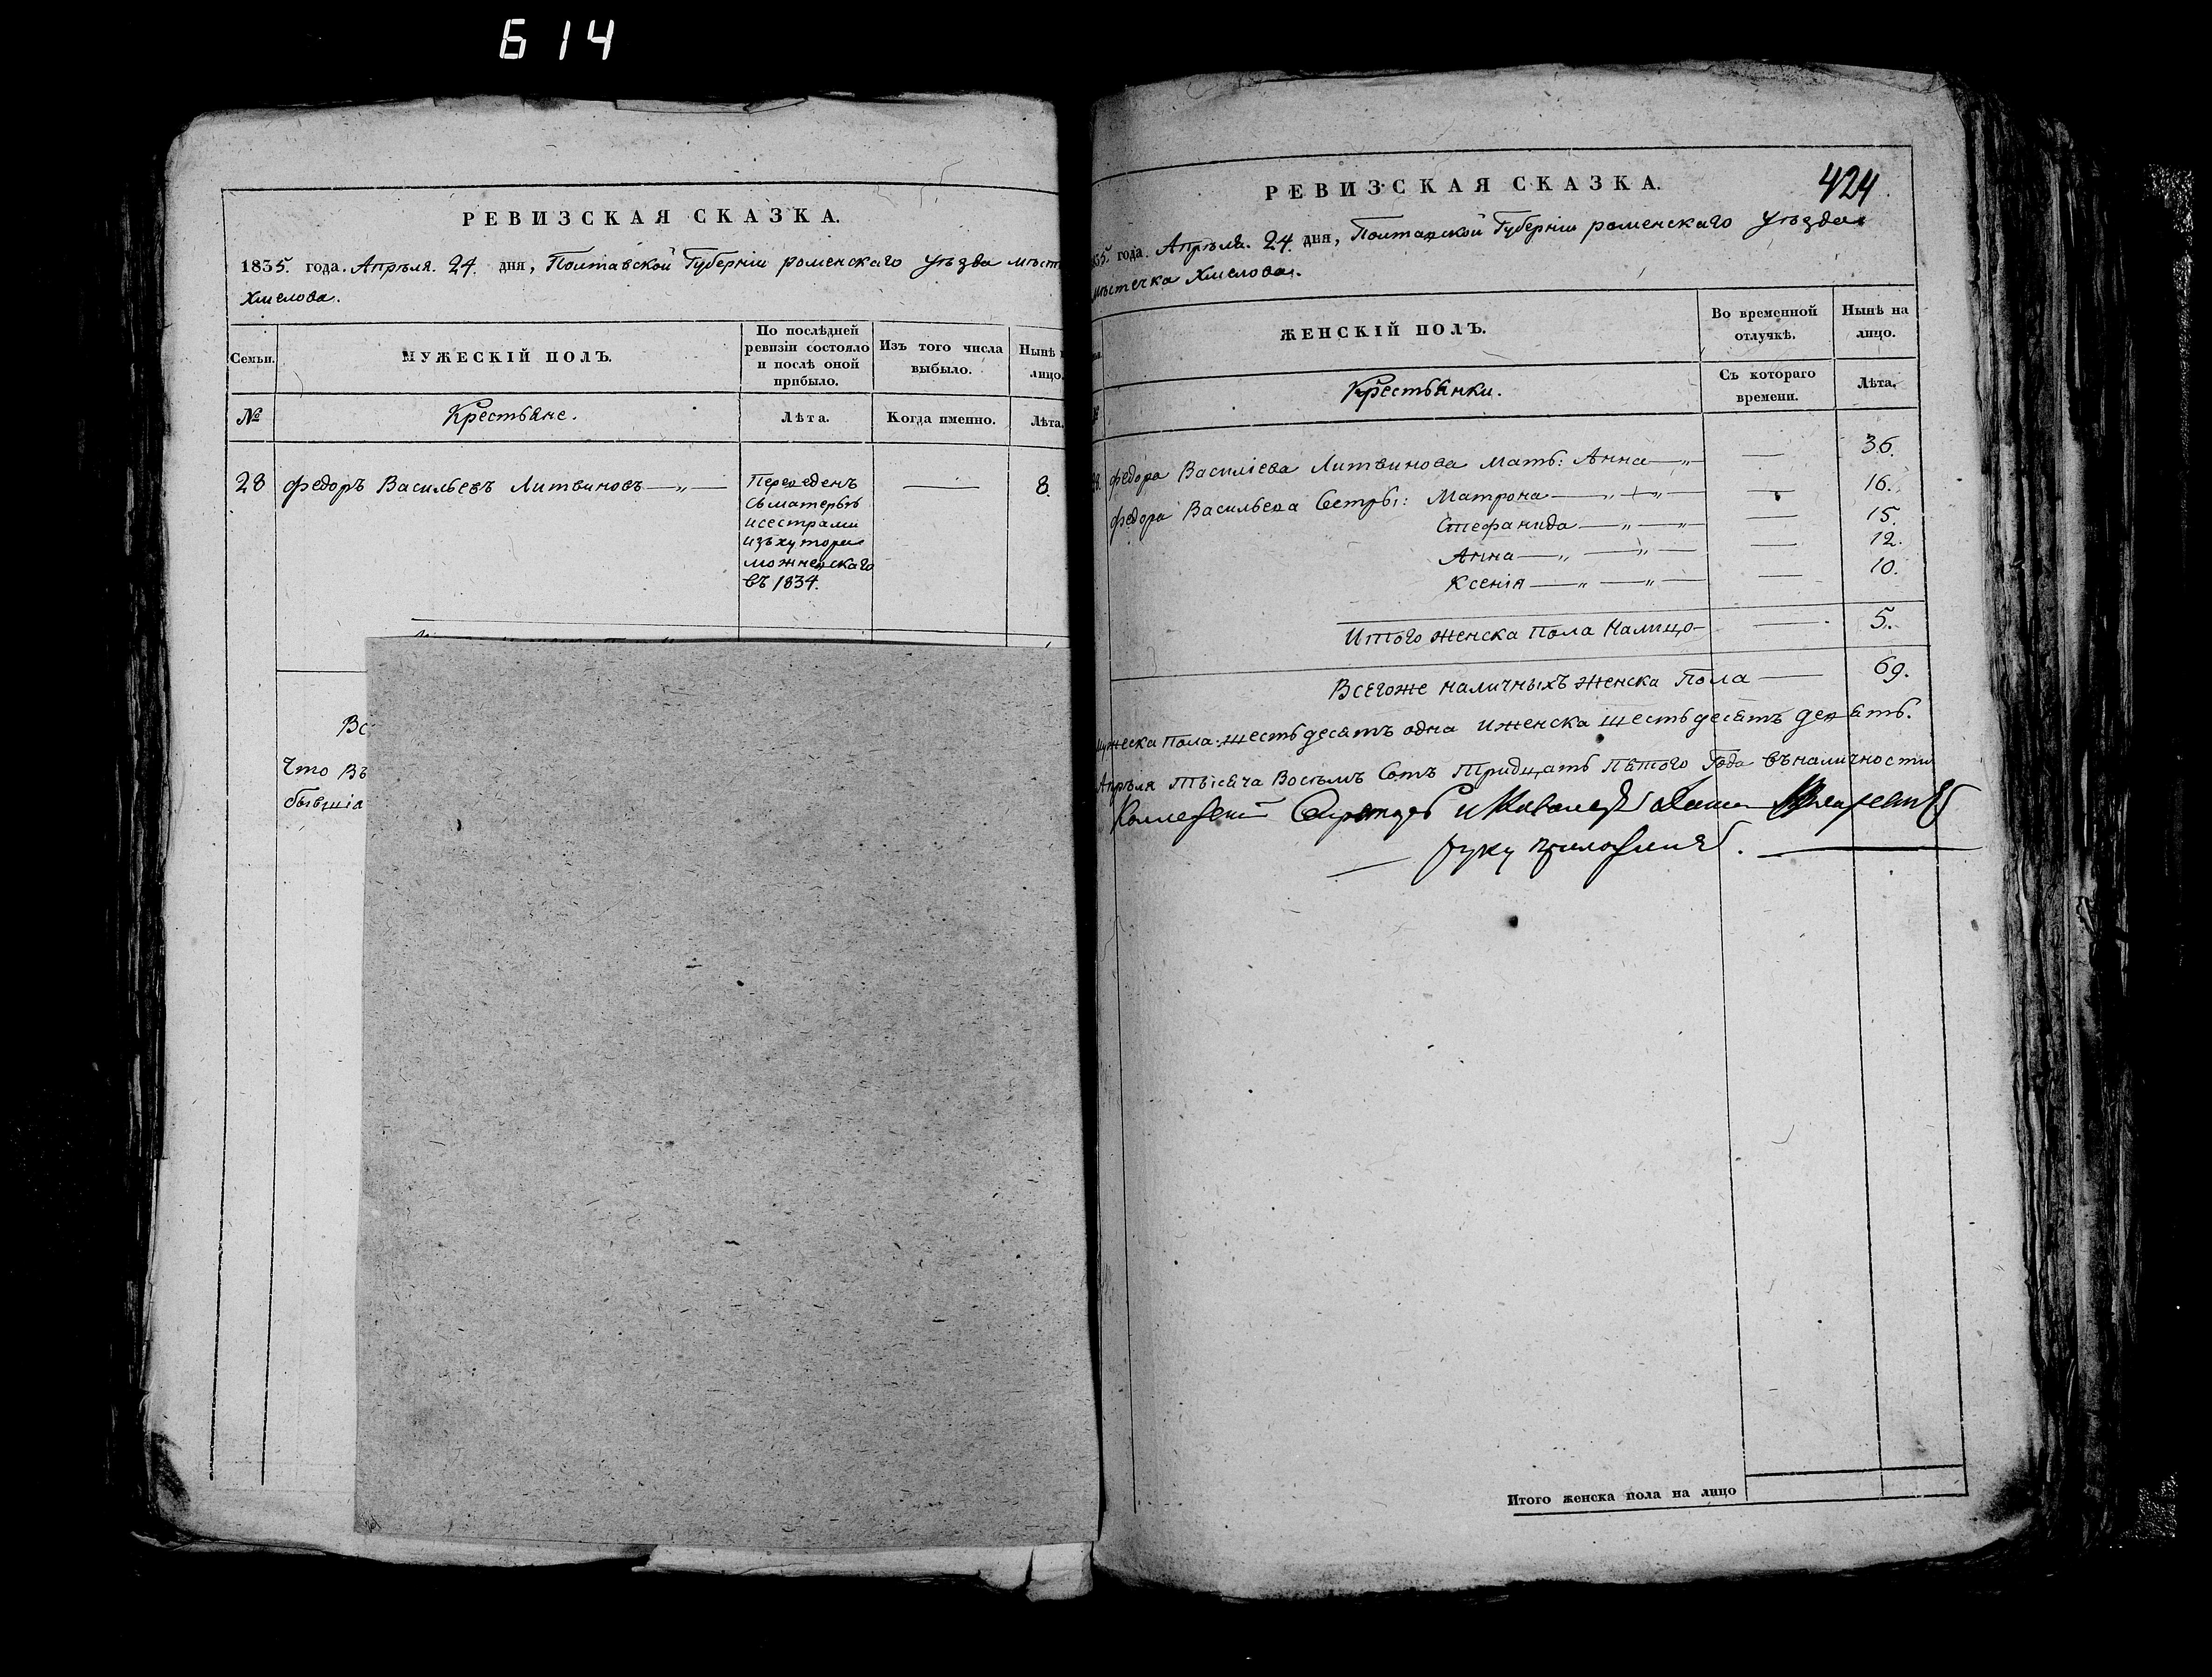 614
РЕВИЗСКАЯ СКАЗКА.
1835. года. Апрѣля. 24. дня, Полтавской Губерніи роменскаго уѣзда мѣст
Хмелова.
Семьи.
МУЖЕСКІЙ ПОЛЪ.
По послѣдней
ревизіи состояло
и послѣ оной
прибыло.
Изъ того числа
выбыло.
Нынѣ
лицо.
№
Крестьяне.
Лѣта.
Когда именно.
Лѣта.
28 федоръ Васильевъ Литвиновъ — „ — 8.
Переведенъ
сьматерью
исестрами
изъхутора
въ 1834.
Вс
Что Въ
бывшіа
424
РЕВИЗСКАЯ СКАЗКА.
835. года. Апрѣля. 24. дня, Полтавской Губерніи роменскаго уѣзда
мѣстечка Хмелова.
ЖЕНСКІЙ ПОЛЪ.
Во временной
отлучкѣ.
Нынѣ на
лицо.
Крестьянки.
Съ котораго
времени.
Лѣта.
федора Василіева Литвинова мать: Анна — „ — — 36.
федора Васильева Сестры: Матрона — „ — „ — 16.
Стефанида — „ — „ — 15.
Анна — „ — „ — — 12.
Ксенія — „ — „ — — 10.
Итого женска пола налицо — — 5.
Всегоже наличныхъ женска пола — 69.
мужеска пола шестьдесятъ одна иженска шестьдесятъ девять.
Апрѣля тысяча Восѣмъ Сотъ тридцать пятого Года въналичности
руку приложилъ.
Итого женска пола на лицо